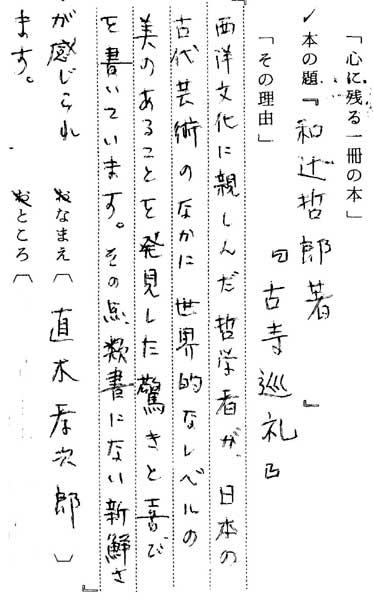 「心に残る一冊の本」
本の題『和辻哲郎著』
『古寺巡礼』
「その理由」
西洋文化に親しんだ哲学者が、日本の
古代芸術のなかに世界的なレベルの
美のあることを発見した驚きと喜び
を書いています。その点類書にない新鮮さ
が感じられ
ます。
おなまえ〔直木孝次郎〕
おところ〔